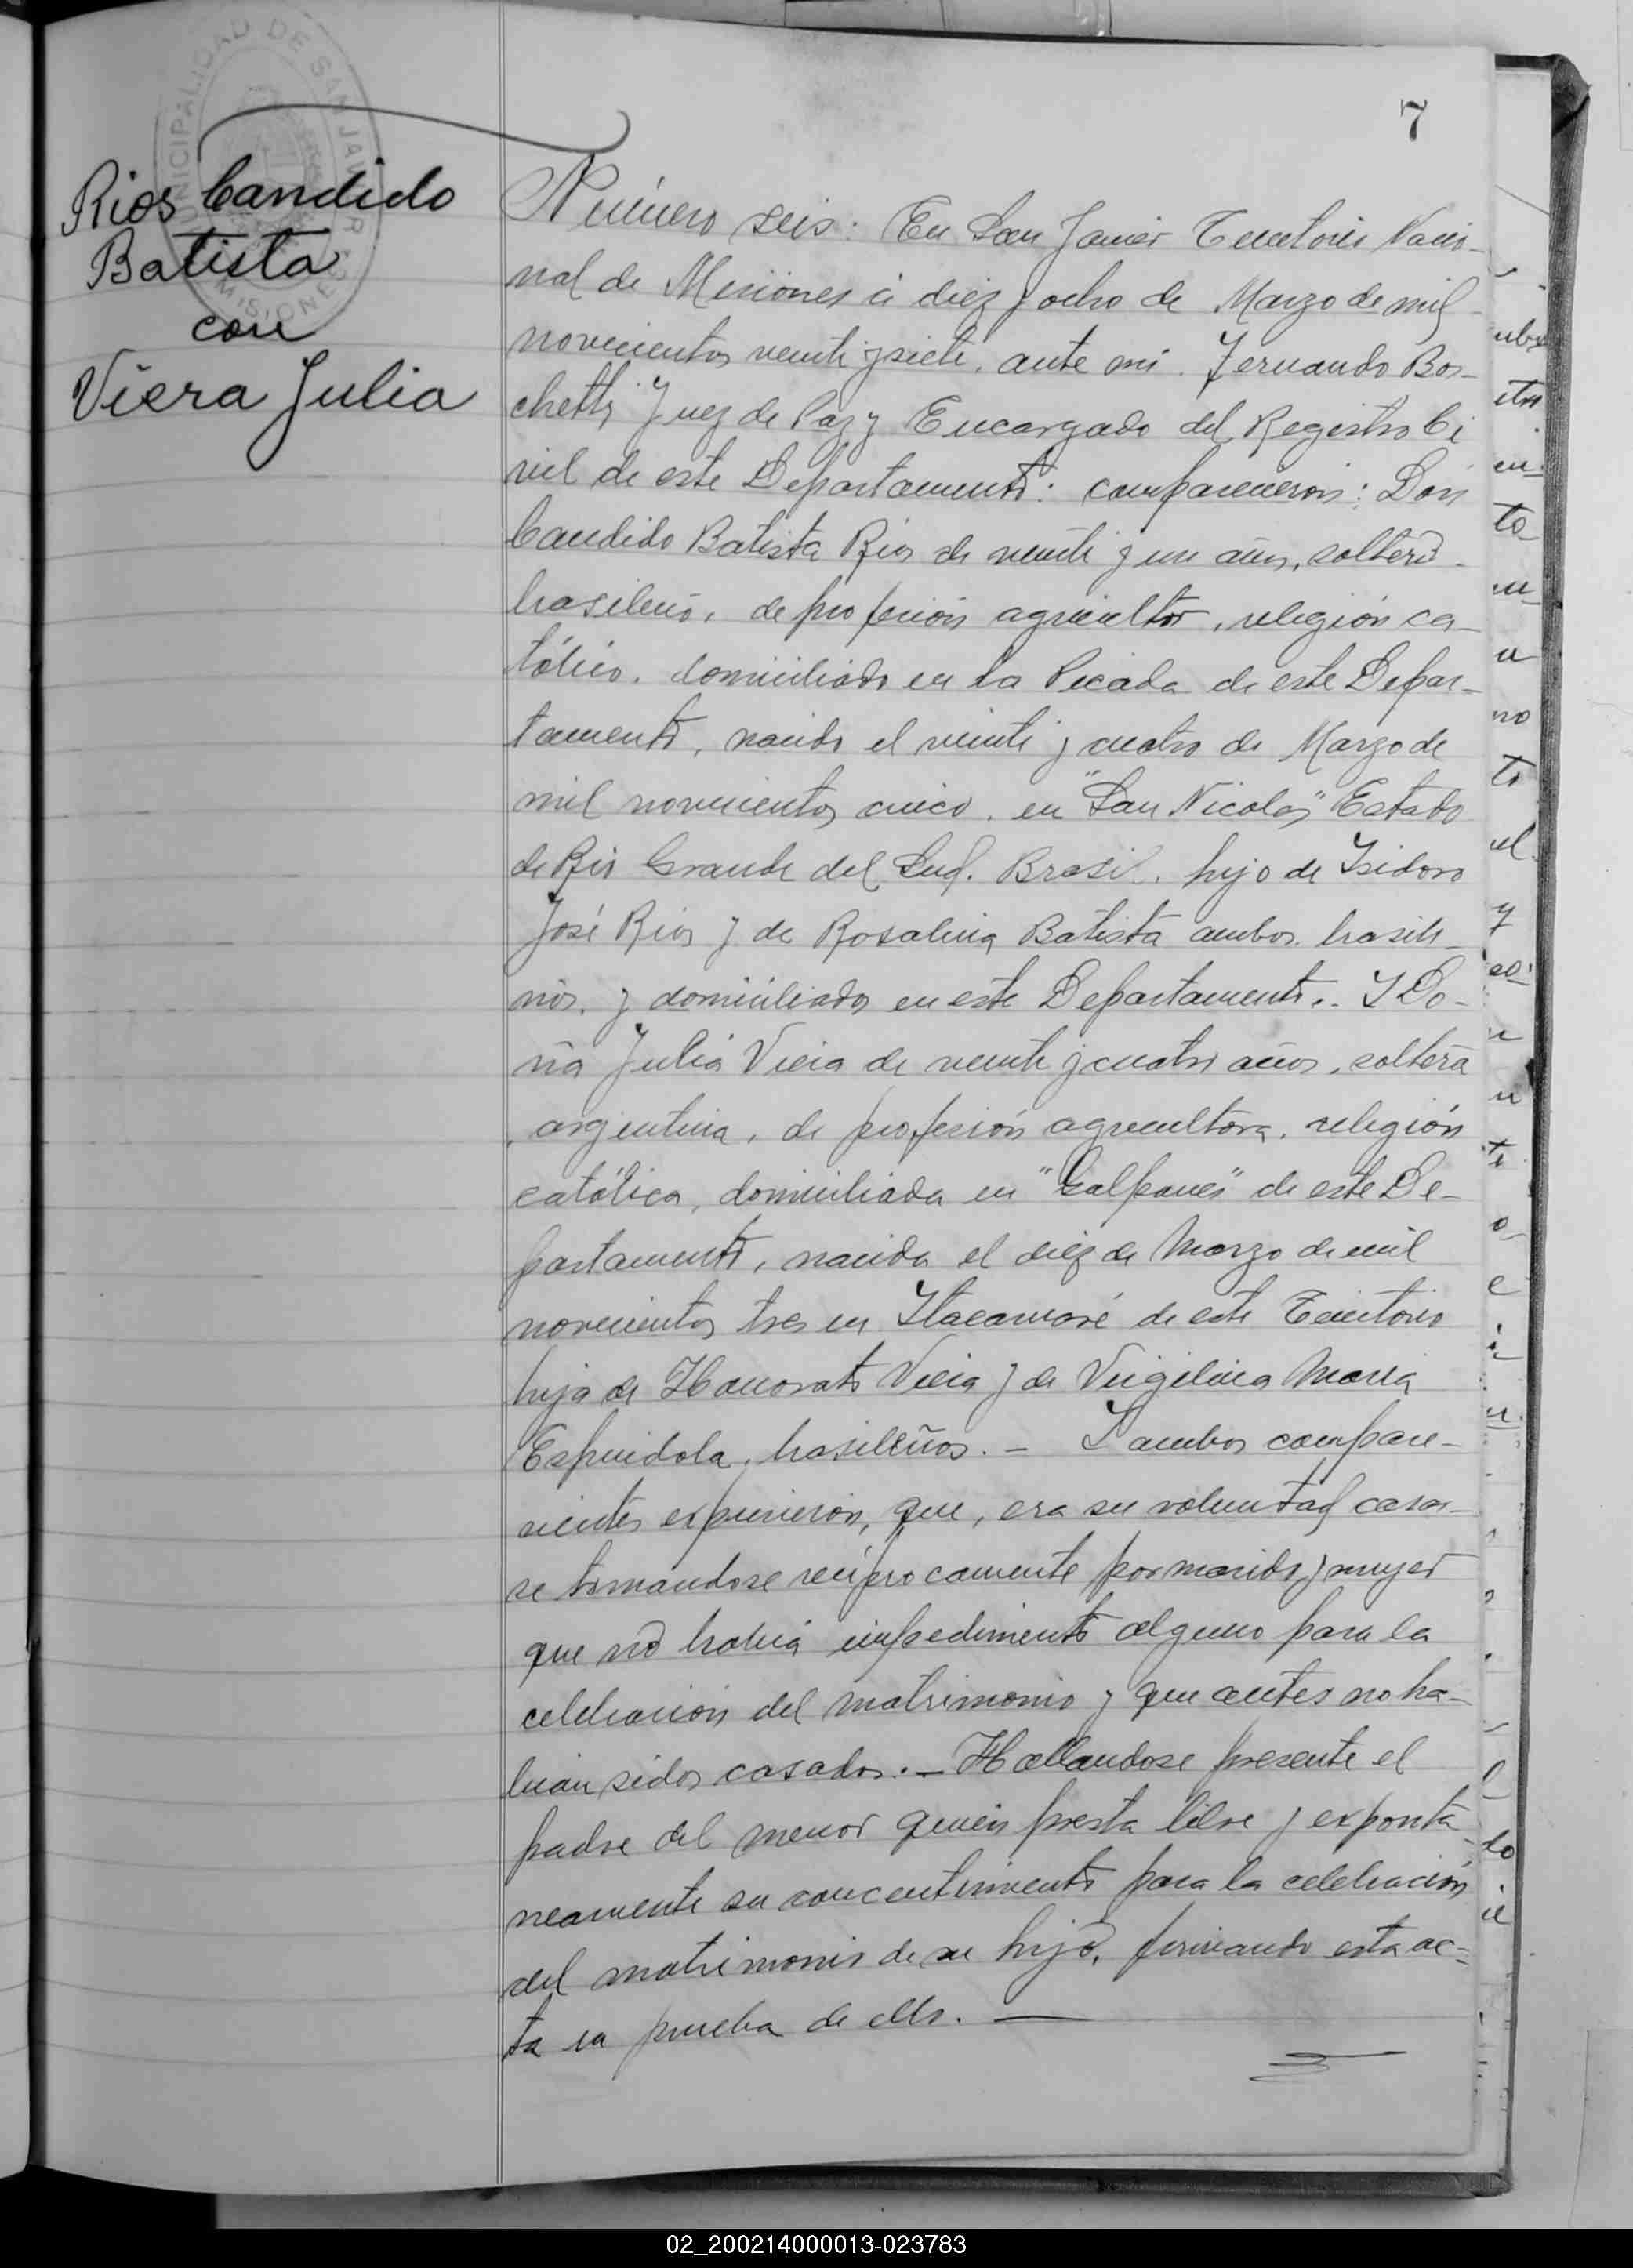 7
Rios Candido
Batista
con
Viera Julia
MUNICIPALIDAD DE SAN JAVIER
MISIONES
Número seis: En San Javier Territorio Nacio-
nal de Misiones á diez y ocho de Marzo de mil
novecientos veinti y siete, ante mi. Fernando Bos-
chetti Juez de Paz y Encargado del Registro Ci
vil de este Departamento: comparecieron: Don
Candido Batista Rios de veinti y un años, soltero
brasileño, de profesión agricultor, religión ca-
tólico. domiciliado en la Picada de este Depar-
tamento, nacido el veinti y cuatro de Marzo de
mil novecientos cinco. en "San Nicolas" Estado
de Rio Grande del Sud. Brasil. hijo de Isidoro
José Rios y de Rosalina Batista ambos brasile-
ños. y domiciliados en este Departamento.. Y Do-
ña Julia Vieia de veinti y cuatro años, soltera
, argentina, de profesión agricultora, religión
católica, domiciliada en "Galpones" de este De-
partamento, nacida el diez de Marzo de mil
novecientos tres en Itacaruaré de este Territorio
hija de Honorato Vieia y de Virgilina Maria
Espindola, brasileños. - Y ambos compare-
cientes expusieron, que, era su voluntad casar-
se tomandose recíprocamente por marido y mujer
que no habia impedimento alguno para la
celebración del matrimonio y que antes no ha-
bian sidos casados. - Hallandose presente el
padre del menor quien presta libre y exponta
neamente su concentimiento para la celebración
del matrimonio de su hijo, firmando esta ac-
ta en prueba de ello. -
02_200214000013-023783